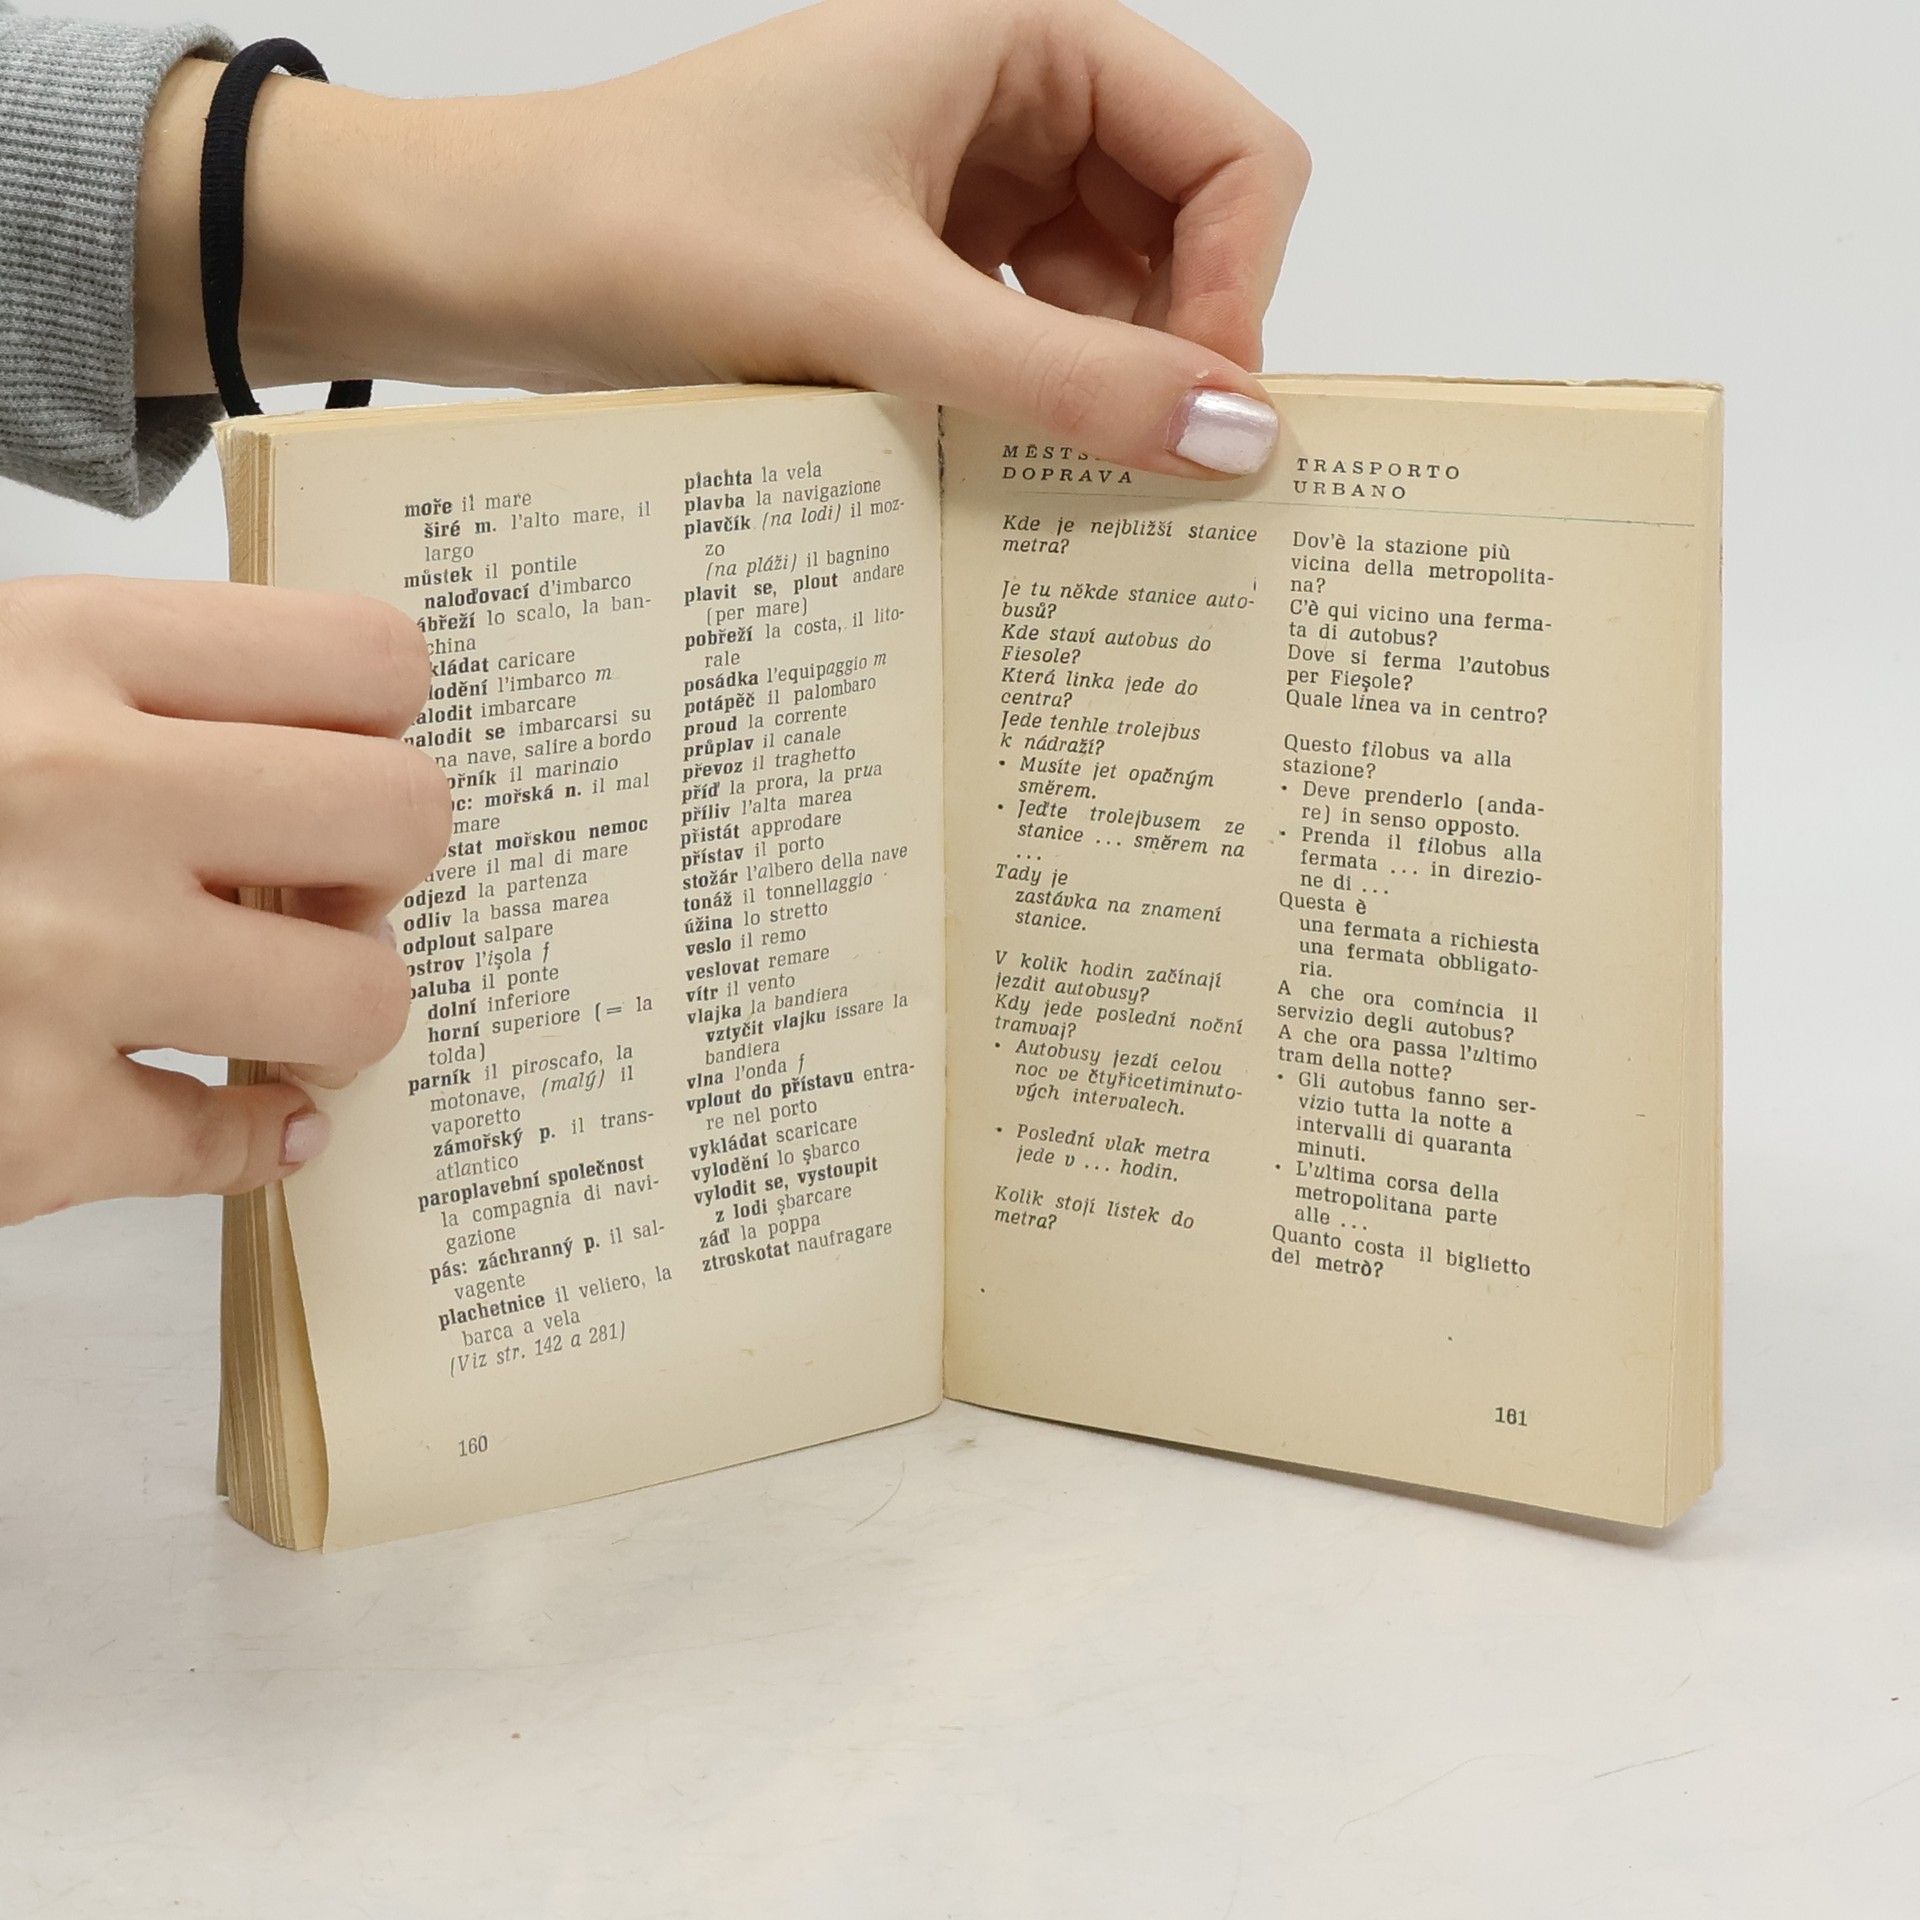 moře il mare
širé m. l'alto mare, il
largo
můstek il pontile
naloďovací d'imbarco
lo scalo, la ban-
china
caricare
l'imbarco m
imbarcare
nalodit se imbarcarsi su
nave, salire a bordo
il marinaio
mořská n. il mal
mare
mořskou nemoc
il mal di mare
odjezd la partenza
odliv la bassa marea
odplout salpare
ostrov l'işola f
paluba il ponte
dolní inferiore
horní superiore (= la
tolda)
parník il piroscafo, la
motonave, (malý) il
vaporetto
zámořský p. il trans-
atlantico
paroplavební společnost
la compagnia di navi-
gazione
pás: záchranný p. il sal-
vagente
plachetnice il veliero, la
barca a vela
(Viz str. 142 a 281)
160
plachta la vela
plavba la navigazione
plavčík (na lodi) il moz-
zo
(na pláži) il bagnino
plavit se, plout andare
(per mare)
pobřeží la costa, il lito-
rale
posádka l'equipaggio m
potápěč il palombaro
proud la corrente
průplav il canale
převoz il traghetto
příď la prora, la prua
příliv l'alta marea
přistát approdare
přístav il porto
stožár l'albero della nave
tonáž il tonnellaggio
úžina lo stretto
veslo il remo
veslovat remare
vítr il vento
vlajka la bandiera
vztyčit vlajku issare la
bandiera
vlna l'onda f
vplout do přístavu entra-
re nel porto
vykládat scaricare
vylodění lo şbarco
vylodit se, vystoupit
z lodi şbarcare
záď la poppa
ztroskotat naufragare
DOPRAVA
Kde je nejbližší stanice
metra?
Je tu někde stanice auto-
busů?
Kde staví autobus do
Fiesole?
Která linka jede do
centra?
Jede tenhle trolejbus
k nádraží?
• Musíte jet opačným
směrem.
• Jeďte trolejbusem ze
stanice ... směrem na
...
Tady je
zastávka na znamení
stanice.
V kolik hodin začínají
jezdit autobusy?
Kdy jede poslední noční
tramvaj?
• Autobusy jezdí celou
noc ve čtyřicetiminuto-
vých intervalech.
• Poslední vlak metra
jede v ... hodin.
Kolik stojí lístek do
metra?
TRASPORTO
URBANO
Dov'è la stazione più
vicina della metropolita-
na?
C'è qui vicino una ferma-
ta di autobus?
Dove si ferma l'autobus
per Fieşole?
Quale línea va in centro?
Questo fílobus va alla
stazione?
• Deve prenderlo (anda-
re) in senso opposto.
• Prenda il fílobus alla
fermata ... in direzio-
ne di ...
Questa è
una fermata a richiesta
una fermata obbligato-
ria.
A che ora comíncia il
servizio degli autobus?
A che ora passa l'ultimo
tram della notte?
• Gli autobus fanno ser-
vizio tutta la notte a
intervalli di quaranta
minuti.
• L'ultima corsa della
metropolitana parte
alle ...
Quanto costa il biglietto
del metrò?
161